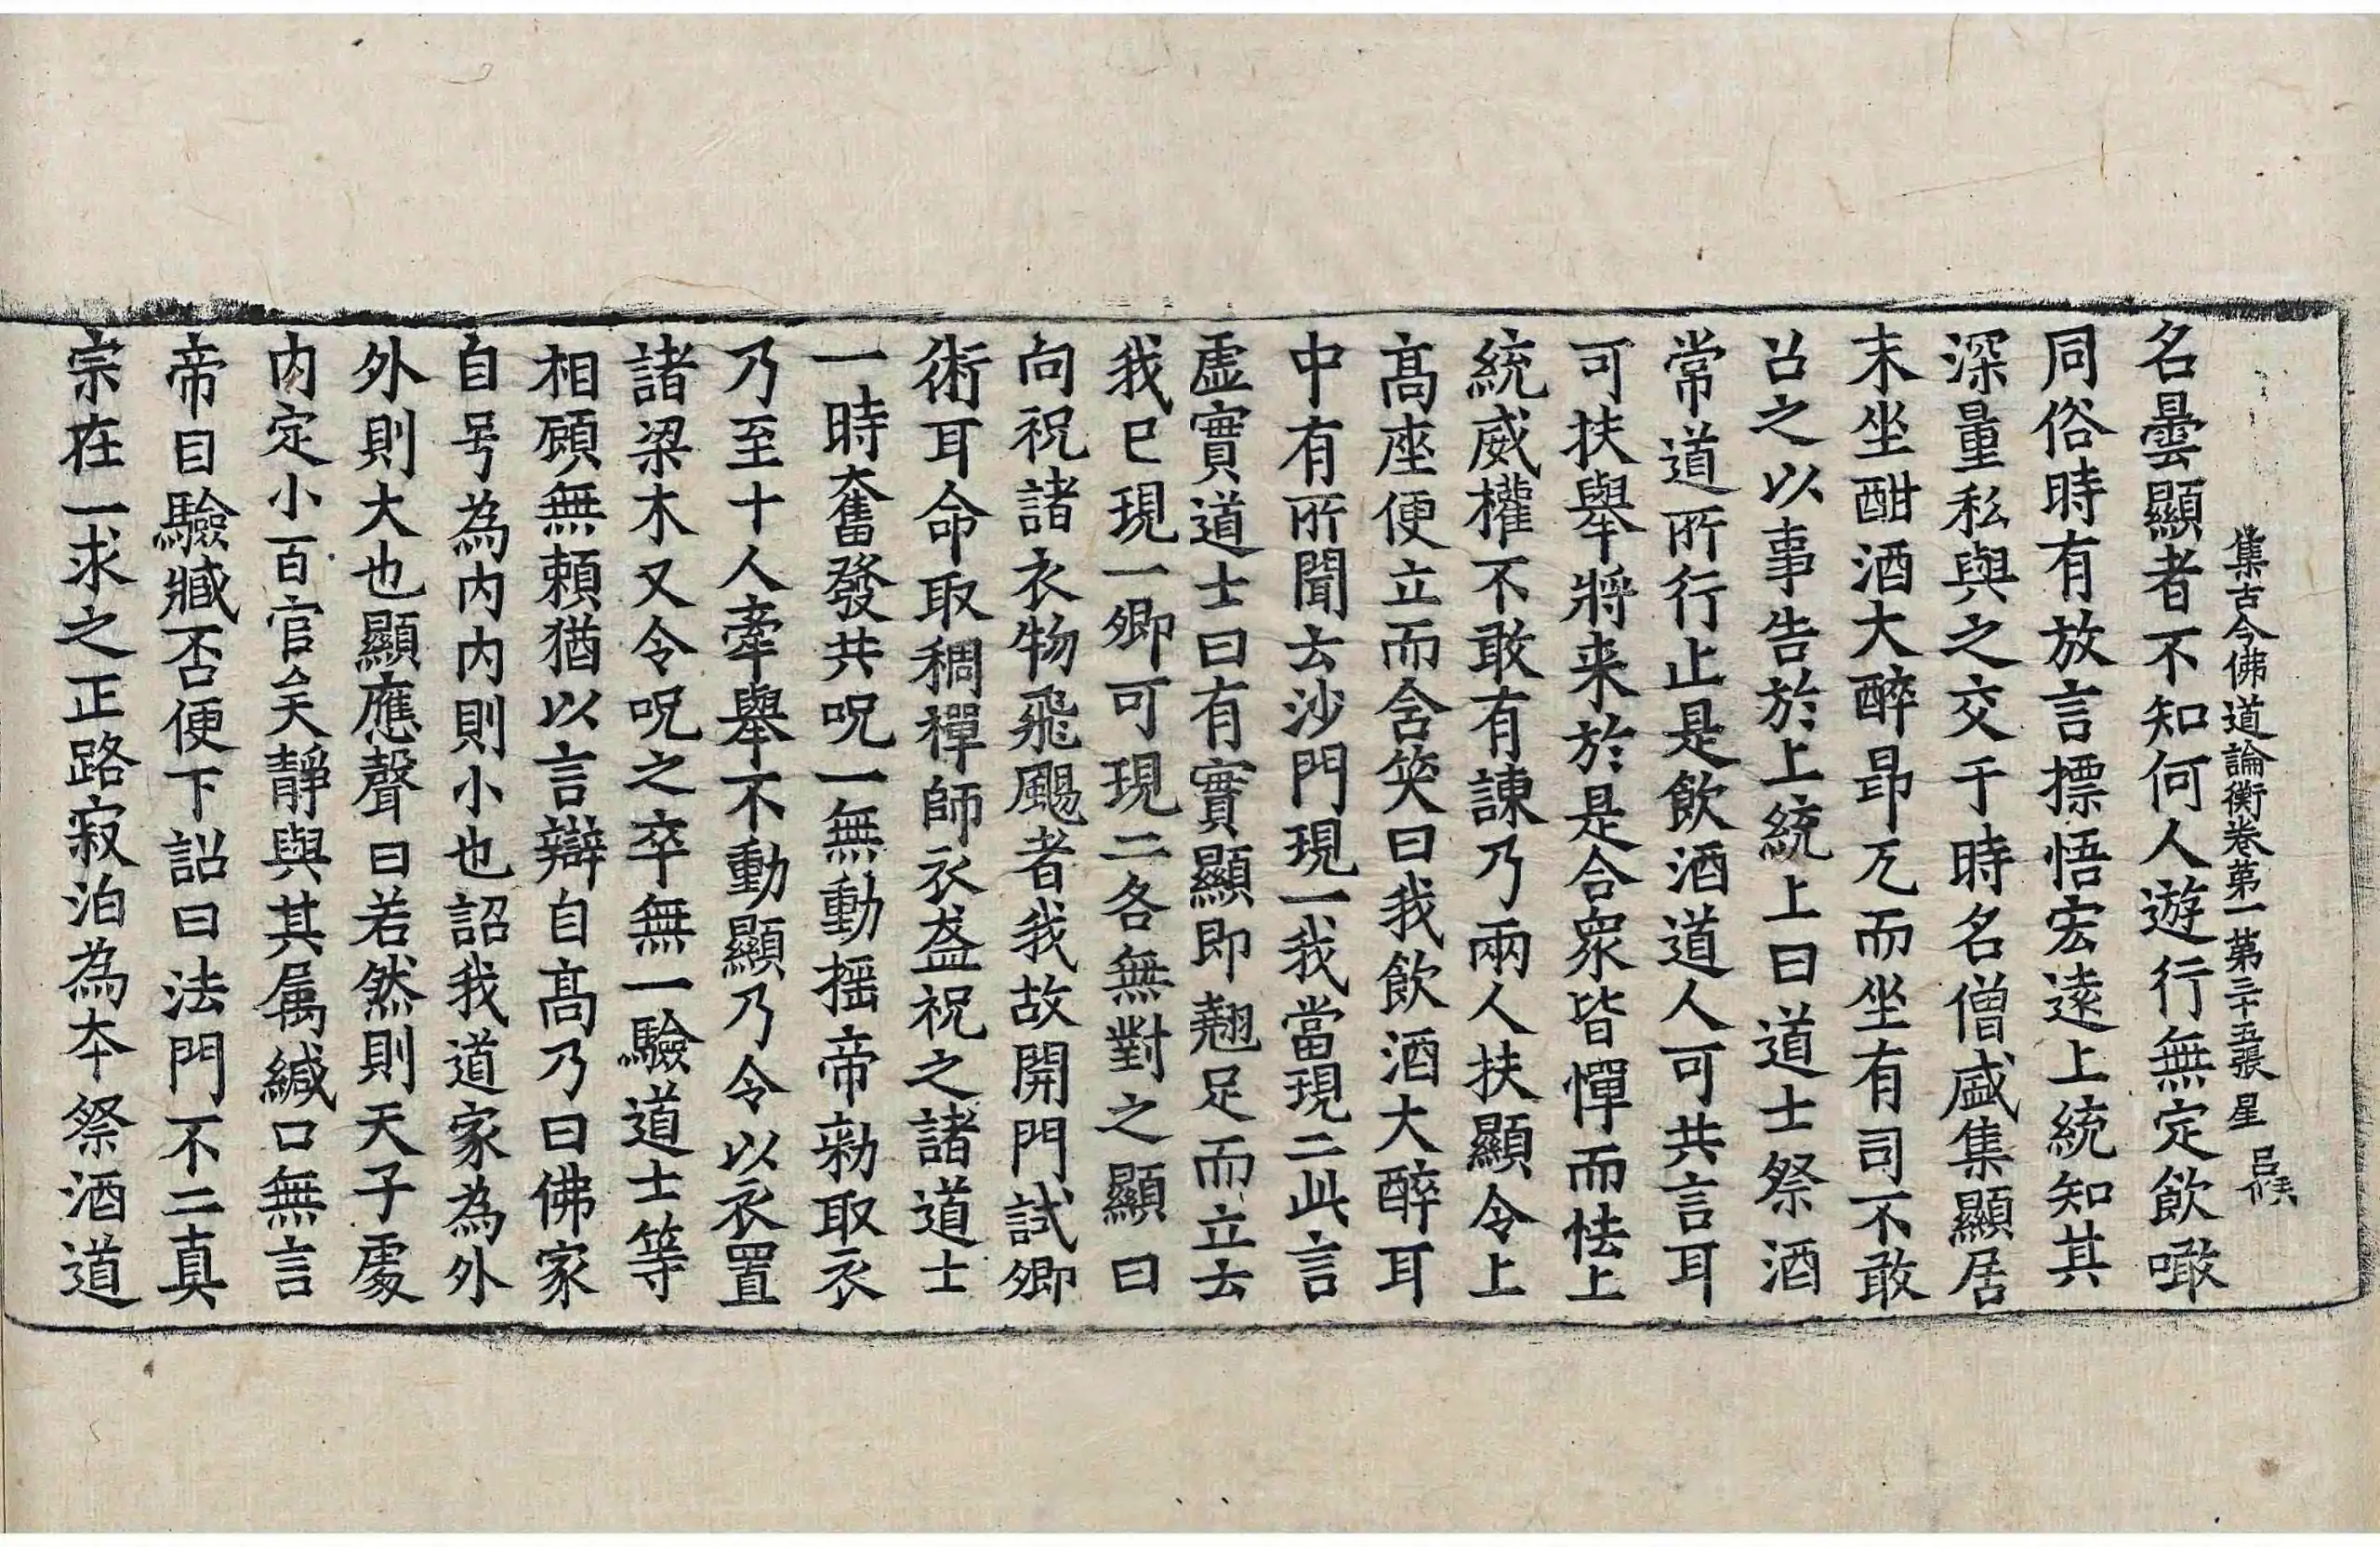 集古今佛道論衡卷第一第三十五張星
名曇顯者不知何人遊行無定飲噉
同俗時有放言摽悟宏遠上統知其
深量私與之交于時名僧盛集顯居
末坐酣酒大醉昂兀而坐有司不敢
召之以事告於上統上曰道士祭酒
常道所行止是飲酒道人可共言耳
可扶舉將来於是合衆皆憚而怯上
統威權不敢有諫乃兩人扶顯令上
髙座便立而含笑曰我飲酒大醉耳
中有所聞去沙門現一我當現二此言
虚實道士曰有實顯即翹足而立去
我已現一卿可現二各無對之顯曰
向祝諸衣物飛颺者我故開門試卿
術耳命取稠禪師衣盋祝之諸道士
一時奮發共呪一無動揺帝勑取衣
乃至十人牽舉不動顯乃令以衣置
諸梁木又令呪之卒無一驗道士等
相顧無賴猶以言辯自髙乃曰佛家
自号為内内則小也詔我道家為外
外則大也顯應聲曰若然則天子處
内定小百官矣靜與其属緘口無言
帝目驗臧否便下詔曰法門不二真
宗在一求之正路寂泊為夲祭酒道